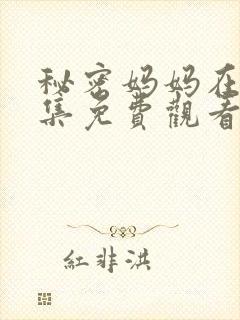 秘密妈妈在
集免費觀看
紅非洪